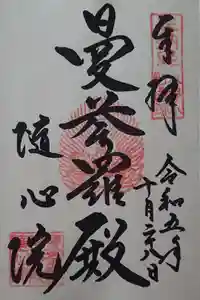 奉拝
曼荼羅殿
随心院
令和五年
十月二十八日